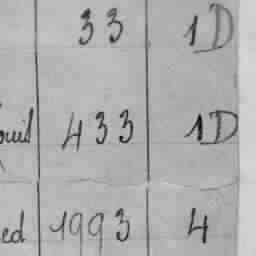 33 1D
433 1D
ed 1993 4